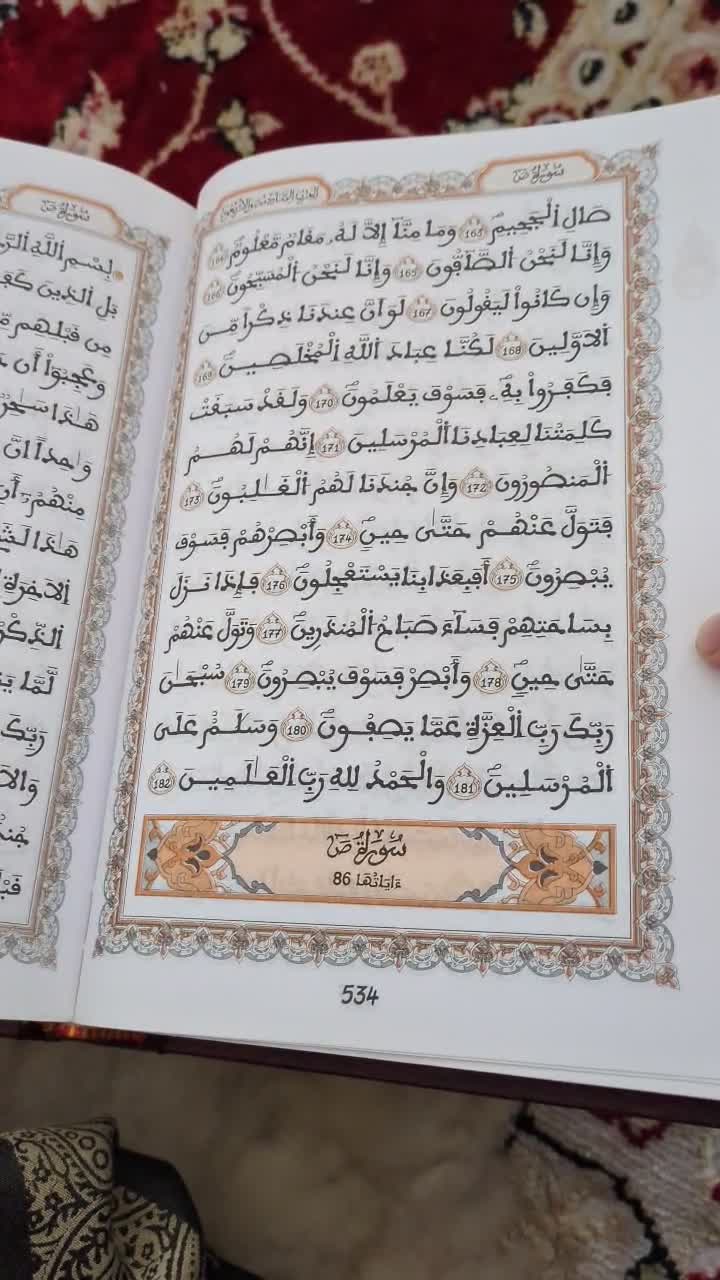 سورة ص
صَالِ الْجَحِيمِ 163 وَمَا مِنَّآ إِلَّا لَهُۥ مَقَامٌ مَّعْلُومٌ 164
وَإِنَّا لَنَحْنُ الصَّآفُّونَ 165 وَإِنَّا لَنَحْنُ الْمُسَبِّحُونَ 166
وَإِن كَانُواْ لَيَقُولُونَ 167 لَوَ اَنَّ عِندَنَا ذِكْراً مِّنَ
اَلَاوَّلِينَ 168 لَكُنَّا عِبَادَ اَللَّهِ اِلْمُخْلَصِينَ 169
فَكَفَرُواْ بِهِۦ فَسَوْفَ يَعْلَمُونَ 170 وَلَقَدْ سَبَقَتْ
كَلِمَتُنَا لِعِبَادِنَا اَلْمُرْسَلِينَ 171 إِنَّهُمْ لَهُمُ
اُلْمَنصُورُونَ 172 وَإِنَّ جُندَنَا لَهُمُ اُلْغَٰلِبُونَ 173
فَتَوَلَّ عَنْهُمْ حَتَّىٰ حِينٍ 174 وَأَبْصِرْهُمْ فَسَوْفَ
يُبْصِرُونَ 175 أَفَبِعَذَابِنَا يَسْتَعْجِلُونَ 176 فَإِذَا نَزَلَ
بِسَاحَتِهِمْ فَسَآءَ صَبَاحُ اُلْمُنذَرِينَ 177 وَتَوَلَّ عَنْهُمْ
حَتَّىٰ حِينٍ 178 وَأَبْصِرْ فَسَوْفَ يُبْصِرُونَ 179 سُبْحَٰنَ
رَبِّكَ رَبِّ اِلْعِزَّةِ عَمَّا يَصِفُونَ 180 وَسَلَٰمٌ عَلَى
اَلْمُرْسَلِينَ 181 وَالْحَمْدُ لِلهِ رَبِّ اِلْعَٰلَمِينَ 182
سُورَةُ صَ
ءَايَاتُهَا 86
534
سورة ص
بِسْمِ اِللَّهِ
بَلِ اِلذِينَ
مِن قَبْلِهِم
وَعَجِبُوٓاْ أَن
هَٰذَا
وَٰحِداً اِنَّ
مِنْهُمُۥٓ
هَٰذَا
اِلَاخِرَةِ
اُلذِّكْرُ
لَّمَّا
رَبِّكَ